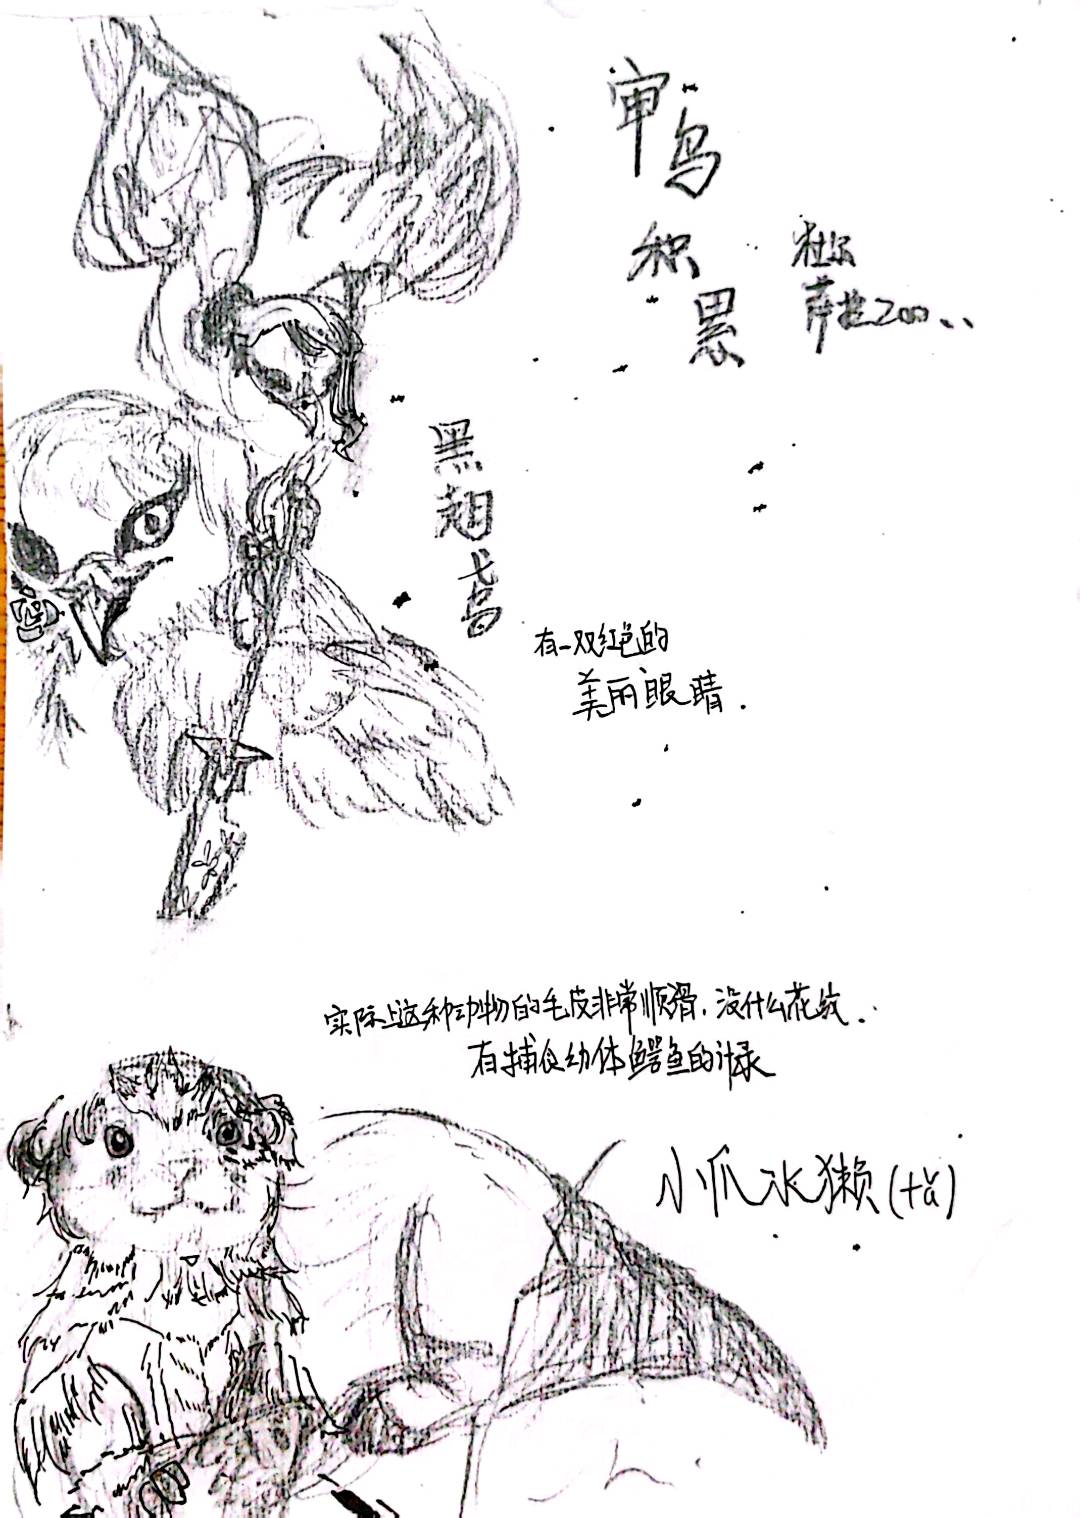 审鸟
积累
黑翅鸢
有一双红色的
美丽眼睛.
实际上这种动物的毛皮非常顺滑,没什么花纹..
有捕食幼体鳄鱼的记录
小爪水獭(tǎ)